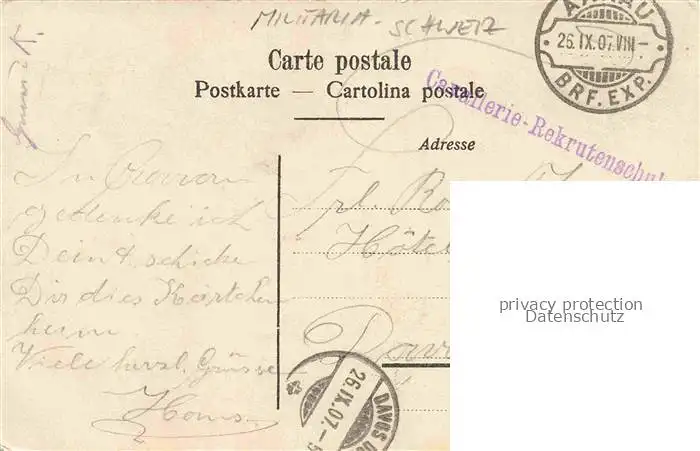 MILITARIA - SCHWEIZ
AARAU
26.IX.07.VIII-
BRF. EXP.
Carte postale
Postkarte — Cartolina postale
Cavallerie-Rekrutenschul
Adresse
In
gedenke ich
Dein & schicke
Dir dies Kärtchen
heim
Viele herzl. Grüsse
Hans
Frl.
Hôtel
Dav
26.IX.07.-5
DAVOS DO
privacy protection
Datenschutz